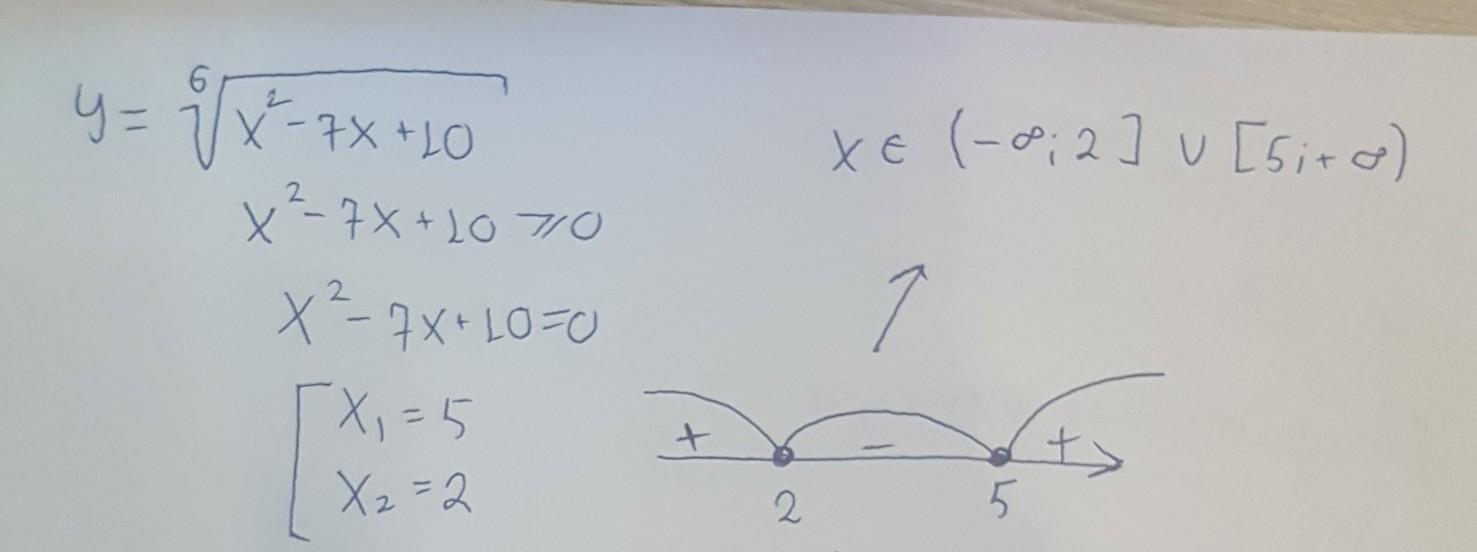 y = ⁶√(x² - 7x + 10)
x² - 7x + 10 ⩾ 0
x² - 7x + 10 = 0
[ x₁ = 5
x₂ = 2
x ∈ (-∞; 2] ∪ [5; + ∞)
+ - +
2 5